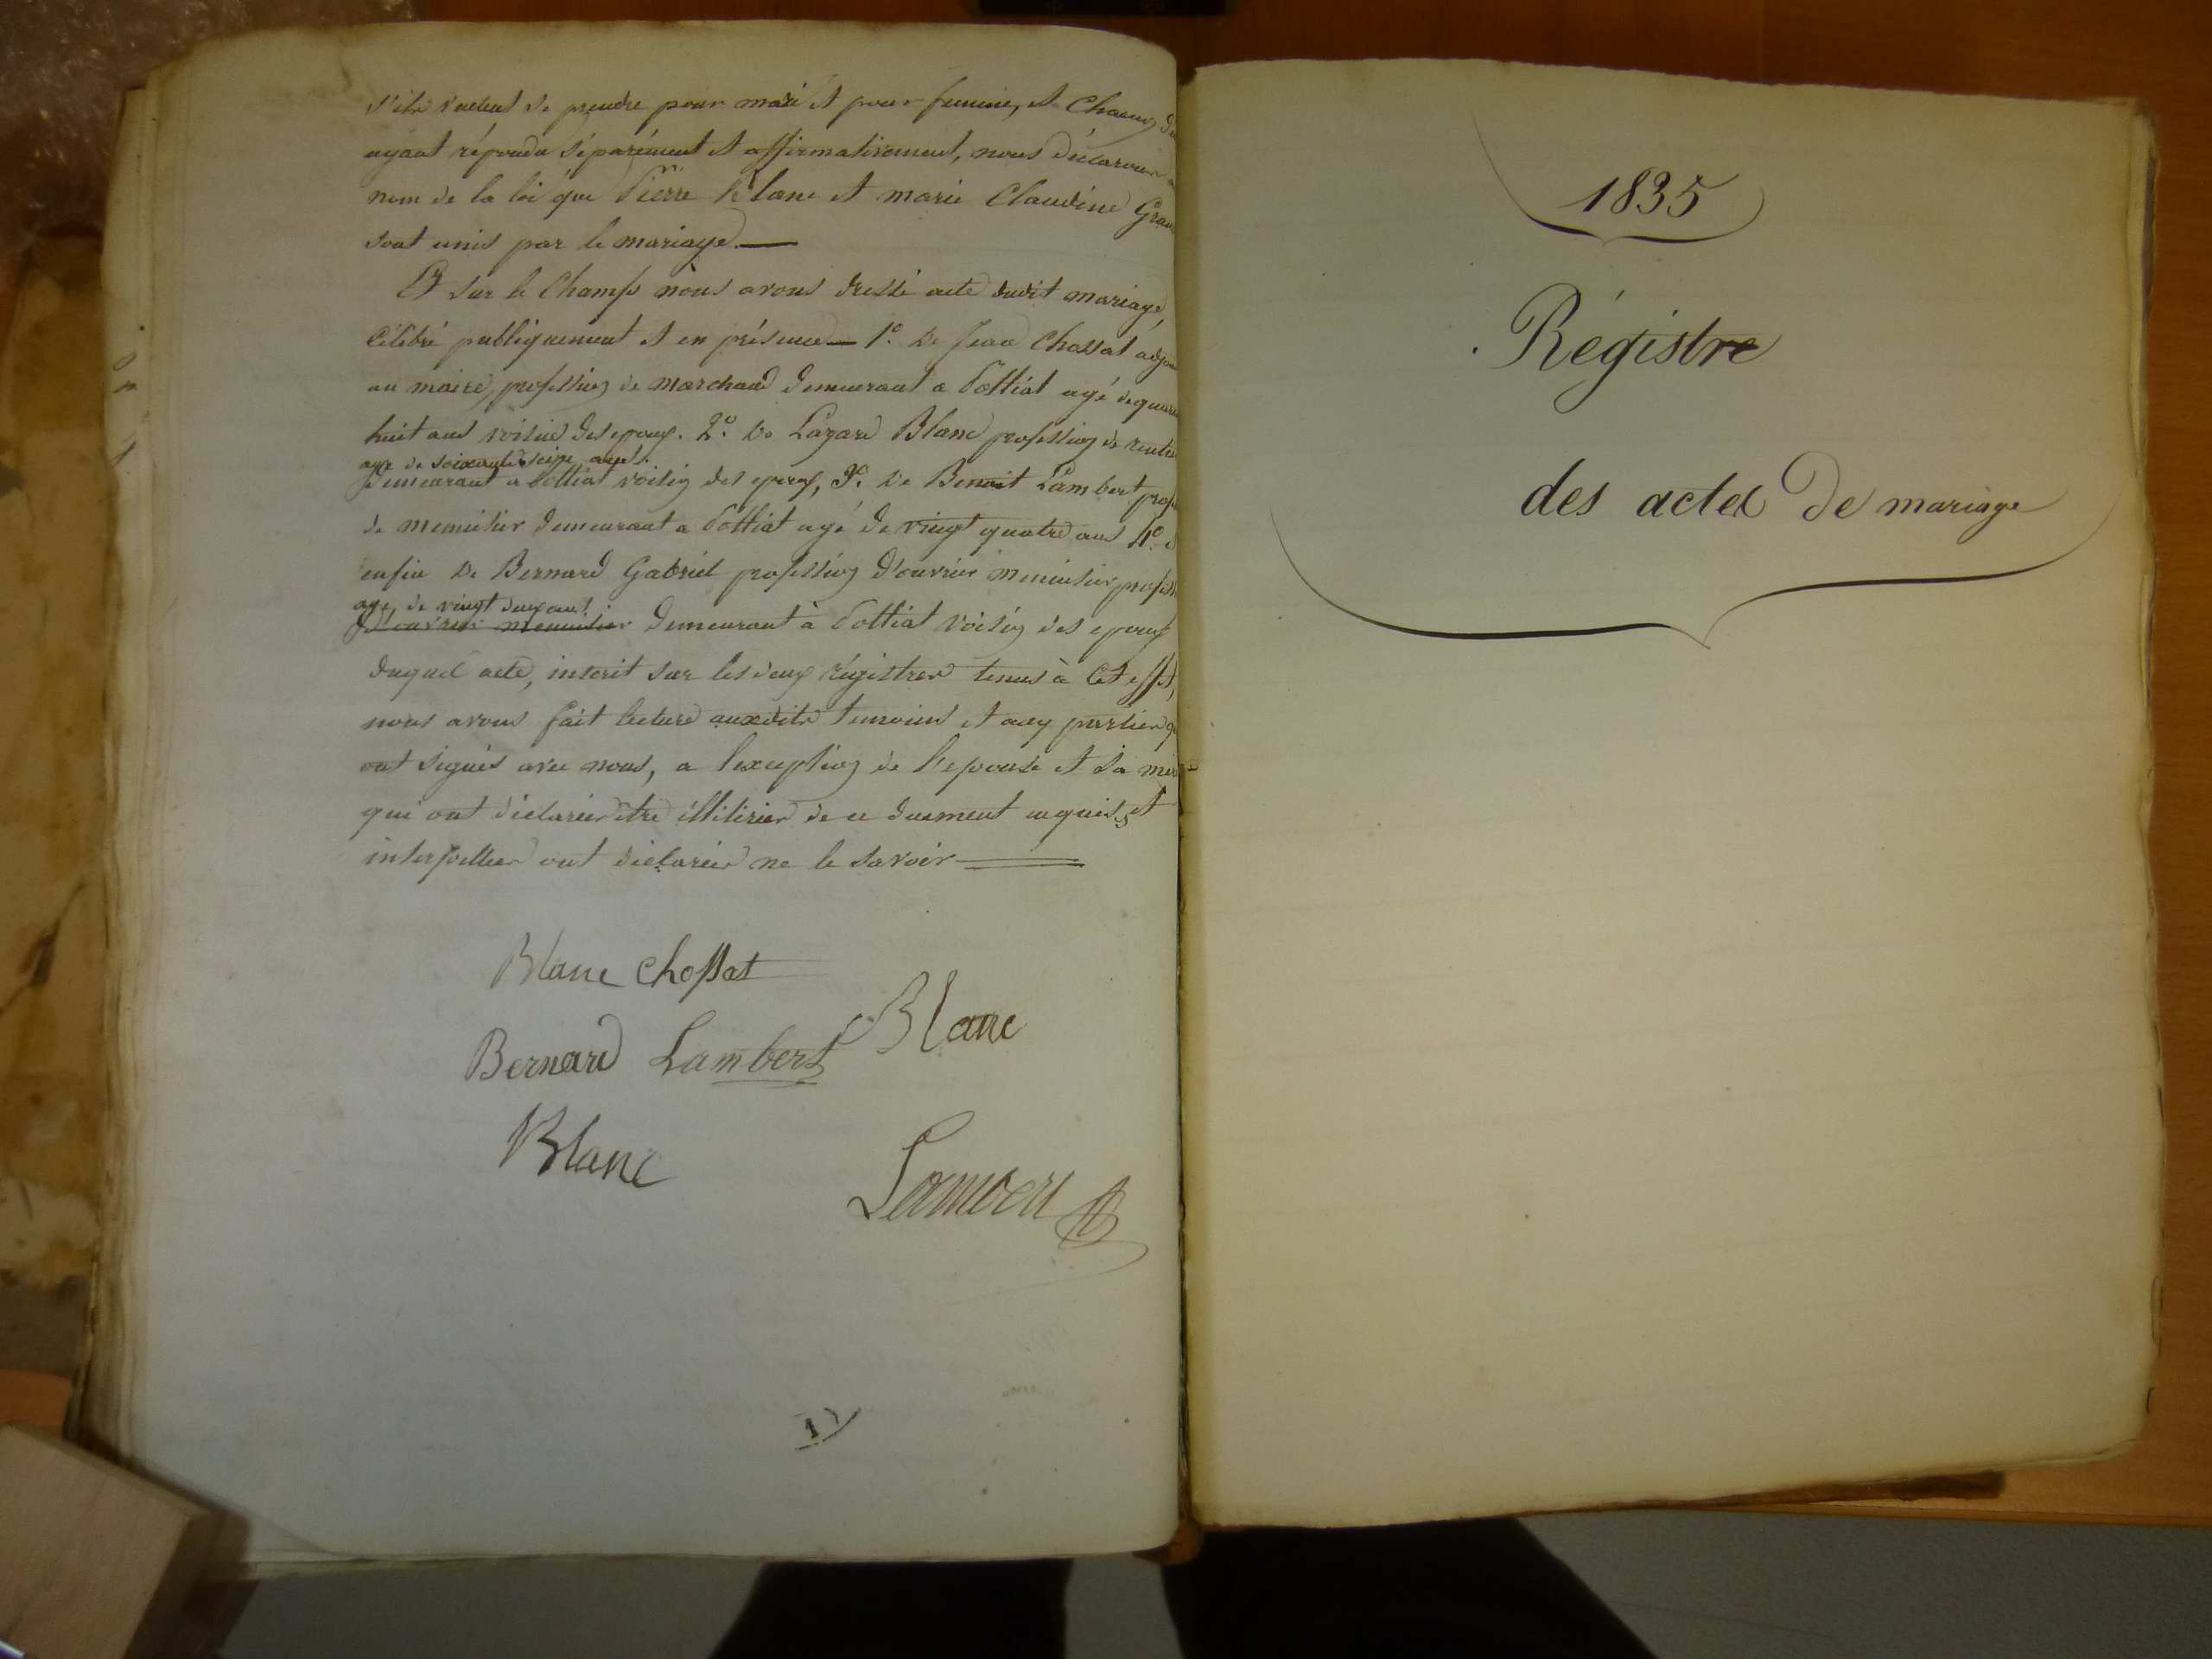 s'ils veulent se prendre pour mari et pour femme, et chacun d'eux
ayant répondu séparément et affirmativement, nous déclarons au
nom de la loi que Pierre Blanc et marie Claudine
sont unis par le mariage.
Et sur le Champs nous avons dressé acte dudit mariage,
Célébré publiquement et en présence 1º. De Jean Chossat adjoint
au maire, profession de marchand demeurant a Pottiat agé de
huit ans voisin des epoux. 2º. De Lazare Blanc profession de rentier
agé de soixante seize ans.
demeurant a Pottiat voisin des epoux, 3º. De Benoit Lambert
de menuisier demeurant a Pottiat agé de vingt quatre ans 4º.
enfin De Bernard Gabriel profession d'ouvrier menuisier
agé, de vingt deux ans.
d'ouvrier menuisier demeurant à Pottiat voisin des epoux
duquel acte, inscrit sur les deux régistres tenus à Cet effet,
nous avons fait lecture auxdits temoins et aux parties
ont signés avec nous, a l'exception de l'epouse et sa
qui ont déclarées être illitirées de ce duement et
interpellées ont déclarées ne le savoir
Blanc Chossat
Blanc
Bernard Lambert
Blanc
Lambert
1
1835
Régistre
des actes De mariage